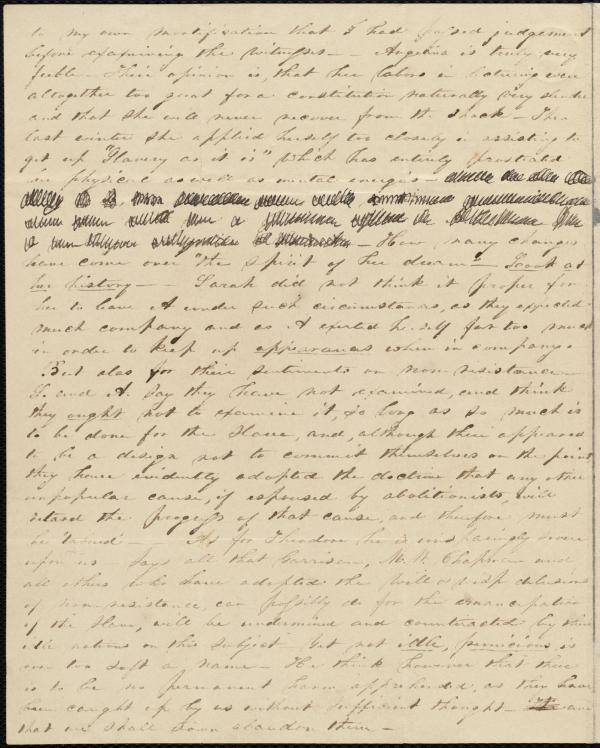 to my own mortification that I had passed judgement
before examining the witnesses — Angelina is truly very
feeble — Their opinion is, that her labors in lecturing were
altogether too great for a constitution naturally very slender
and that she will never recover from the shock — Then
last winter she applied herself too closely in assisting to
get up "Slavery as it is" which has entirely prostrated
her physical as well as mental energies —
— How many changes
have come over "the spirit of her dream" — Look at
her history — — Sarah did not think it proper for
her to leave A under such circumstances, as they expected
much company and as A exerted herself far too much
in order to keep up appearances when in company.
But alas for their sentiments on non-resistance —
S. and A. say they have not examined, and think
they ought not to examine it, so long as so much is
to be done for the Slave, and, although there appeared
to be a design not to commit themselves on the point
they have evidently adopted the doctrine that any other
unpopular cause, if espoused by abolitionists, will
retard the progress of that cause, and therefore must
be — As for Theodore he is unsparingly severe
upon us — says all that Garrison, M. W. Chapman and
all others who have adopted the will o' wisp delusions
of non-resistance, can possibly do for the emancipation
of the Slave, will be undermined and counteracted by their
idle notions on this subject — Yet not idle, pernicious is
even too soft a name — He think however that there
is to be no permanent harm apprehended, as they have
been caught up by us without sufficient thought — and
that we shall soon abandon them —